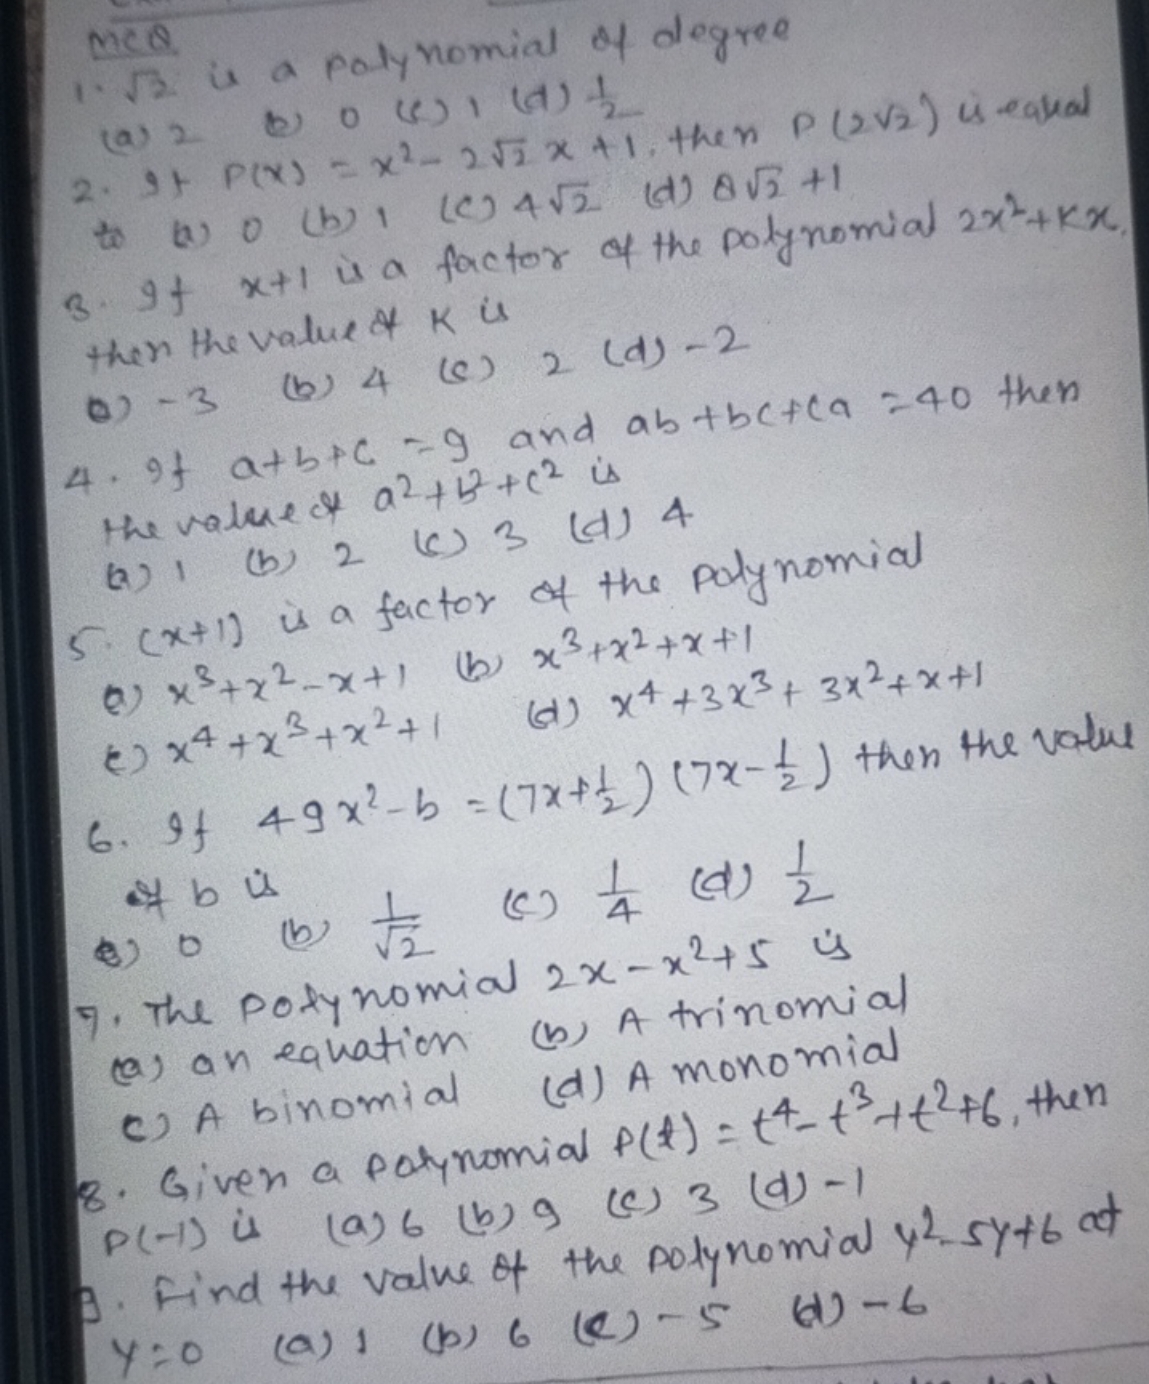 MCQ
1. √2 is a polynomial of degree
(a) 2 b) 0 (c) 1 (d) 1/2
2. If P(x) = x² - 2√2 x + 1, then P(2√2) is equal
to (a) 0 (b) 1 (c) 4√2 (d) 8√2 + 1
3. If x+1 is a factor of the polynomial 2x² + Kx,
then the value of K is
a) -3 (b) 4 (c) 2 (d) -2
4. If a+b+c = 9 and ab+bc+ca = 40 then
the value of a²+b²+c² is
(a) 1 (b) 2 (c) 3 (d) 4
5. (x+1) is a factor of the polynomial
a) x³+x²-x+1 (b) x³+x²+x+1
c) x⁴+x³+x²+1 (d) x⁴+3x³+3x²+x+1
6. If 49x²-b = (7x+1/2) (7x-1/2) then the value
of b is
a) 0 (b) 1/√2 (c) 1/4 (d) 1/2
7. The polynomial 2x-x²+5 is
(a) an equation (b) A trinomial
c) A binomial (d) A monomial
8. Given a polynomial P(t) = t⁴-t³+t²+6, then
P(-1) is (a) 6 (b) 9 (c) 3 (d) -1
9. Find the value of the polynomial y²-5y+6 at
y=0 (a) 1 (b) 6 (c) -5 (d) -6